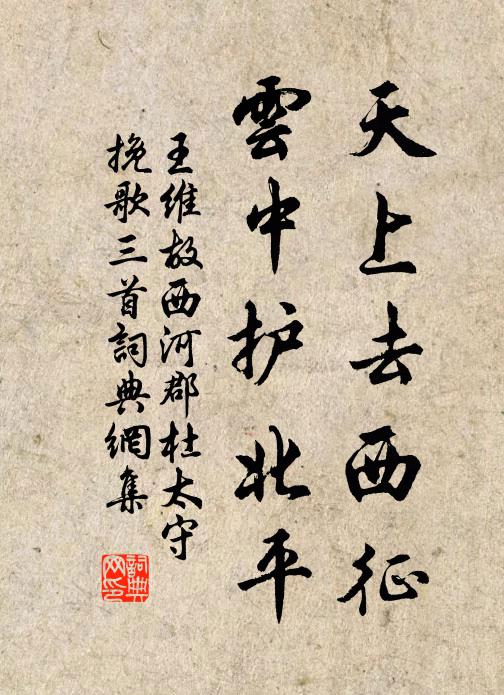 天上去西征
雲中护北平
王維故西河郡杜太守
挽歌三首詞典網集
詞典網印